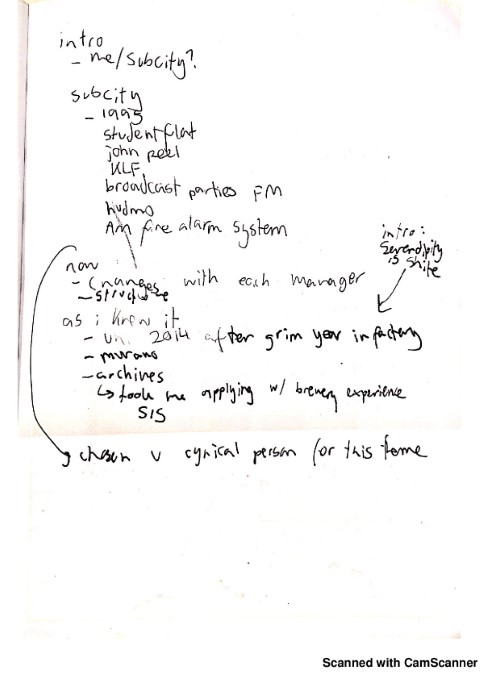 intro
- me/subcity?
subcity
- 1995
student flat
john peel
KLF
broadcast parties FM
hudmo
AM fire alarm system
intro:
Serendipity
is shite
now
- changes with each manager
- structure
as i knew it
- uni 2014 after grim year in factory
- murano
- archives
↳ took me applying w/ brewery experience
SIS
chosen v cynical person for this
Scanned with CamScanner